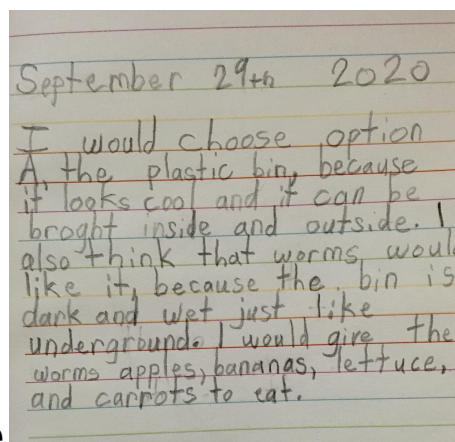 September 29th 2020
I would choose option
A, the plastic bin, because
it looks cool and it can be
broght inside and outside. I
also think that worms would
like it, because the bin is
dark and wet just like
underground. I would give the
worms apples, bananas, lettuce,
and carrots to eat.